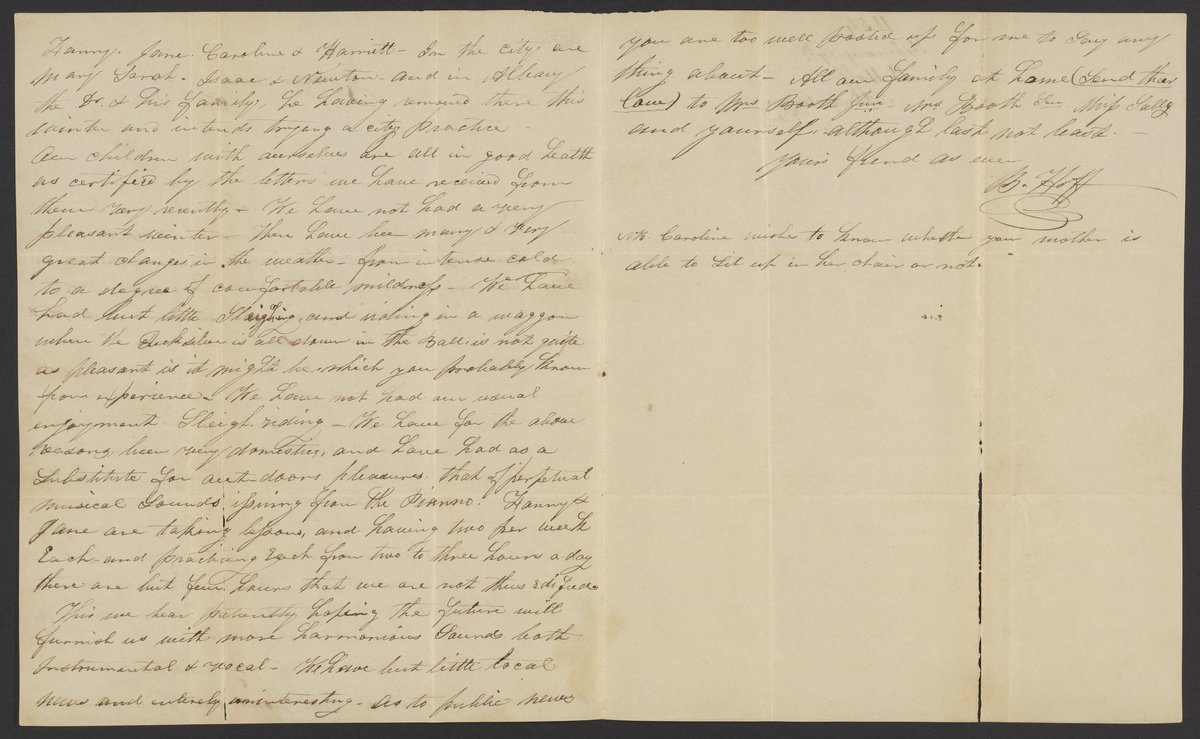 Fanny. Jane. Caroline & Harriett - In the city, are
Mary Sarah. Isaac & Newton - and in Albany
the Dr. & his family, he having removed there this
winter and intends trying a city practice -
Our children with ourselves are all in good health
as certified by the letters we have received from
them very recently - We have not had a very
pleasant winter - There have been many & very
great changes in the weather - from intense cold
to a degree of comfortable mildness - We have
had but little Sleighing, and riding in a waggon
when the Quicksilver is all down in the Ball, is not quite
as pleasant as it might be, which you probably know
from experience - We have not had our usual
enjoyment Sleigh riding - We have for the above
reasons, been very domestic, and have had as a
Substitute for out-doors pleasures, that of perpetual
musical Sounds issuing from the Pianno. Fanny &
Jane are taking lessons, and having two per week
Each - and practicing Each from two to three hours a day
there are but few hours that we are not thus edified
This we bear patiently hoping the future will
furnish us with more harmonious Sounds both
Instrumental & vocal - We have but little local
news and entirely uninteresting - As to public news
you are too well posted up for me to say any
thing about - All our family at home (Send their
love) to Mrs Booth Jun. Mrs Booth Sen. Miss Sally
and yourself, although last not least. -
Yours friend as ever
B. Hoff
NB. Caroline wishes to know whether your mother is
able to sit up in her chair or not.